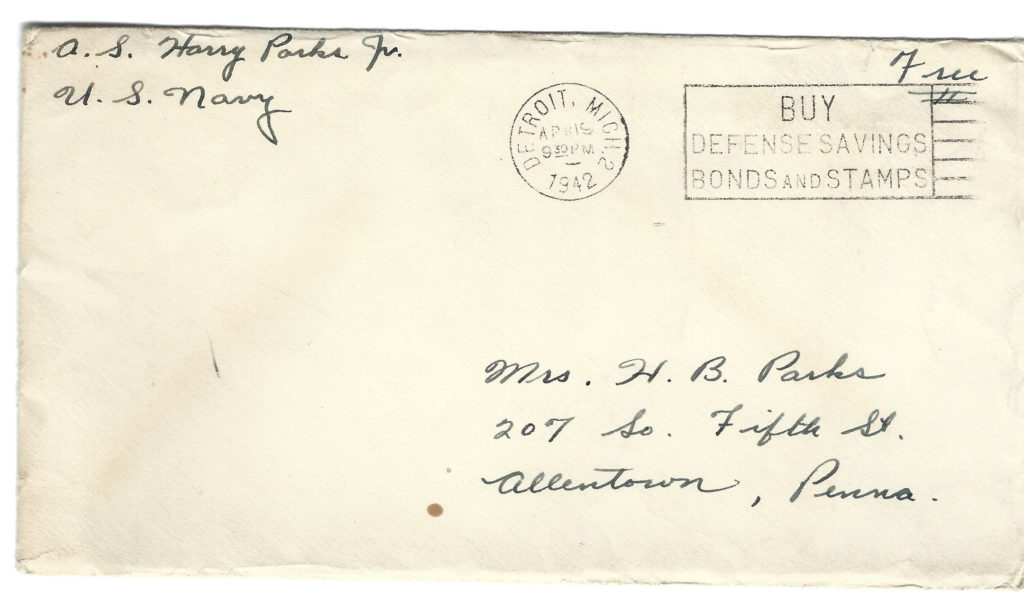 A. S. Harry Parks Jr.
U. S. Navy
Free
DETROIT, MICH. 2
APR 19
9 30 PM
1942
BUY
DEFENSE SAVINGS
BONDS AND STAMPS
Mrs. H. B. Parks
207 So. Fifth St.
Allentown, Penna.